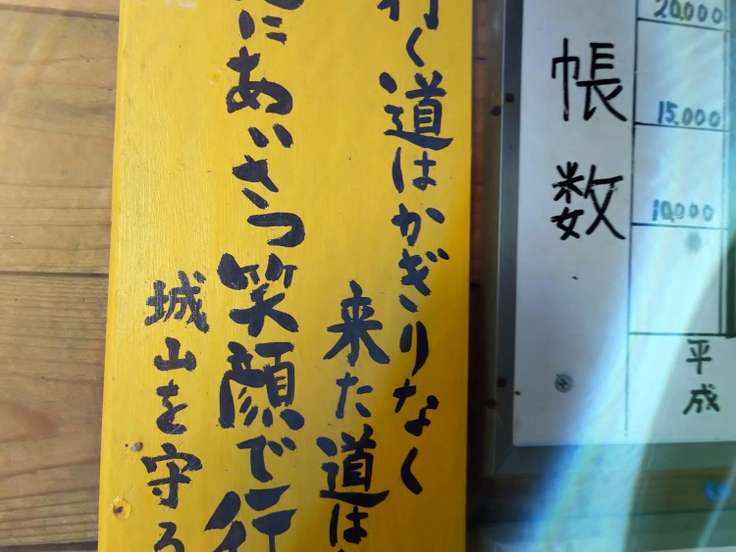 行く道はかぎりなく
来た道は
にあいさつ笑顔で行
城山を守る
帳数
20,000
15,000
10,000
平成